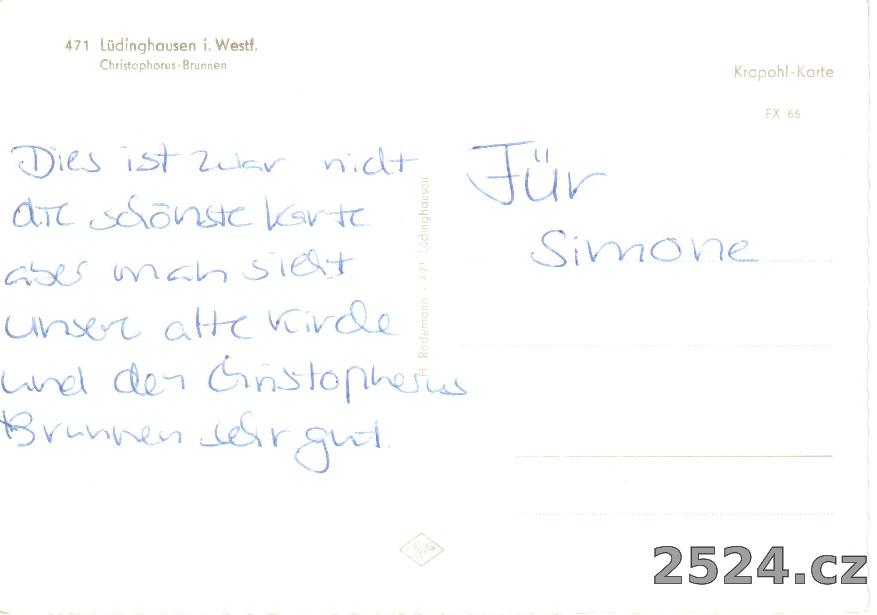 471 Lüdinghausen i. Westf.
Christophorus-Brunnen
Krapohl-Karte
FX 66
Dies ist zwar nicht
die schönste Karte
aber man sieht
unsere alte Kirche
und den Christopherus
Brunnen sehr gut.
H. Rademann - 471 Lüdinghausen
Für
Simone
2524.cz